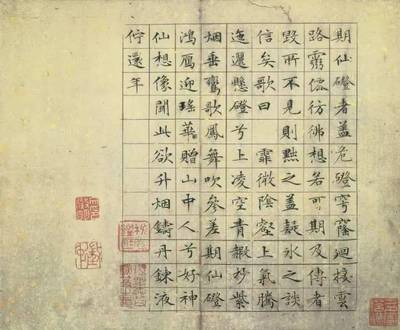 期仙磴者蓋危磴穹窿迴接雲
路靈僊彷彿想若可期及傳者
毀所不見則黜之蓋疑冰之談
信矣歌曰 霏微陰壑上氣騰
迤邐懸磴兮上凌空青霞杪紫
烟垂鸞歌鳳舞吹參差期仙磴
鴻鴈迎瑤華贈山中人兮好神
仙想像聞此欲升烟鑄丹鍊液
佇還年